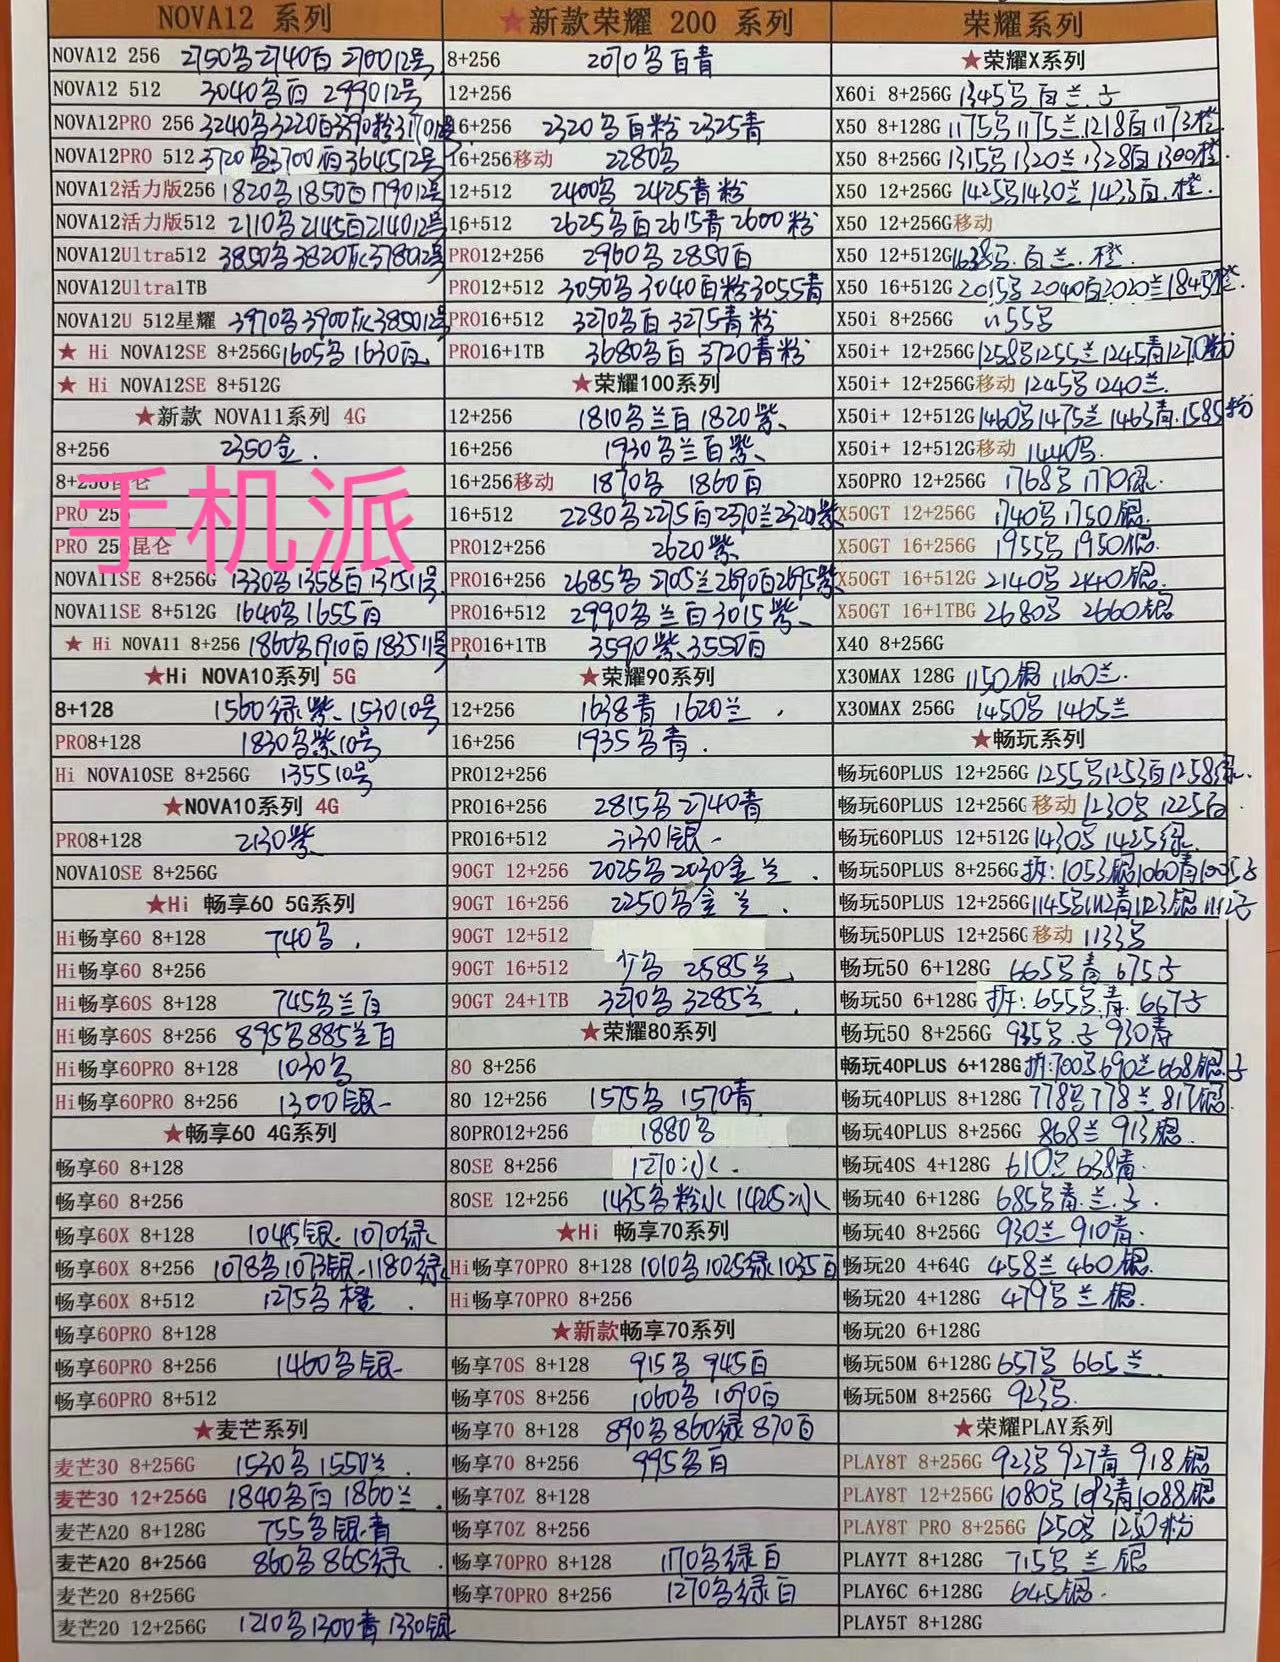 NOVA12 系列
NOVA12 256 2750 2740白 270012号
NOVA12 512 3040 白 299012号
NOVA12PRO 256 3240 3220白
NOVA12PRO 512 3720 3700白364512号
NOVA12活力版256 1820 1850白179012号
NOVA12活力版512 2110 2145白214012号
NOVA12Ultra512 3850 3820灰378012号
NOVA12Ultra1TB
NOVA12U 512星耀 3970 3900灰385012号
★ Hi NOVA12SE 8+256G 1605 1630白
★ Hi NOVA12SE 8+512G
★新款 NOVA11系列 4G
8+256 2350金.
8+256昆仑
手机派
PRO 256
PRO 256昆仑
NOVA11SE 8+256G 1330 1358白131511号
NOVA11SE 8+512G 1640 1655白
★ Hi NOVA11 8+256 1860 1910白183511号
★Hi NOVA10系列 5G
8+128 1560绿紫 153010号
PRO8+128 1830 紫10号
Hi NOVA10SE 8+256G 135510号
★NOVA10系列 4G
PRO8+128 2130紫
NOVA10SE 8+256G
★Hi 畅享60 5G系列
Hi畅享60 8+128 740
Hi畅享60 8+256
Hi畅享60S 8+128 745 兰白
Hi畅享60S 8+256 895 885兰白
Hi畅享60PRO 8+128 1030
Hi畅享60PRO 8+256 1300银
★畅享60 4G系列
畅享60 8+128
畅享60 8+256
畅享60X 8+128 1045银 1070绿
畅享60X 8+256 1078 1073银 1180绿
畅享60X 8+512 1275 橙.
畅享60PRO 8+128
畅享60PRO 8+256 1460 银
畅享60PRO 8+512
★麦芒系列
麦芒30 8+256G 1530 1550兰.
麦芒30 12+256G 1840 白 1860兰.
麦芒A20 8+128G 755 银.青
麦芒A20 8+256G 860 865绿
麦芒20 8+256G
麦芒20 12+256G 1210 1300青 1330银
★新款荣耀 200 系列
8+256 2070 白青
12+256
16+256 2320 白粉 2325青
16+256移动 2280
12+512 2400 2425青粉
16+512 2625 白2615青2600粉
PRO12+256 2960 2850白
PRO12+512 3050 3040白粉3055青
PRO16+512 3270 白 3275青粉
PRO16+1TB 3680 白 3720青粉
★荣耀100系列
12+256 1810 兰白 1820紫
16+256 1930 兰白紫
16+256移动 1870 1860白
16+512 2280 2275白2370兰2320紫
PRO12+256 2620紫
PRO16+256 2685 2705兰2690白2695紫
PRO16+512 2990 兰白3015紫
PRO16+1TB 3590紫3550白
★荣耀90系列
12+256 1638青 1620兰
16+256 1935 青.
PRO12+256
PRO16+256 2815 2740青
PRO16+512 3130银
90GT 12+256 2025 2030金兰.
90GT 16+256 2250 金兰.
90GT 12+512
90GT 16+512 少 2585兰
90GT 24+1TB 3270 3285兰
★荣耀80系列
80 8+256
80 12+256 1575 1570青
80PRO12+256 1880
80SE 8+256 1270冰.
80SE 12+256 1435 粉冰 1425冰
★Hi 畅享70系列
Hi畅享70PRO 8+128 1010 1025绿1035白
Hi畅享70PRO 8+256
★新款畅享70系列
畅享70S 8+128 915 945白
畅享70S 8+256 1060 1090白
畅享70 8+128 890 860绿870白
畅享70 8+256 995 白
畅享70Z 8+128
畅享70Z 8+256
畅享70PRO 8+128 1170 绿白
畅享70PRO 8+256 1270 绿白
荣耀系列
★荣耀X系列
X60i 8+256G 1345 白兰
X50 8+128G 1175 1175兰1218白1173橙
X50 8+256G 1315 1320兰1328白1300橙
X50 12+256G 1425 1430兰 1423白.橙.
X50 12+256G移动
X50 12+512G 1638 白兰.橙
X50 16+512G 2015 2040白2020兰1845橙
X50i 8+256G 1155
X50i+ 12+256G 1258 1255兰1245青1270粉
X50i+ 12+256G移动 1245 1240兰
X50i+ 12+512G 1460 1475兰1463青.1585粉
X50i+ 12+512G移动 1440
X50PRO 12+256G 1768 1770银.
X50GT 12+256G 1740 1750银
X50GT 16+256G 1955 1950银.
X50GT 16+512G 2140 2440银
X50GT 16+1TBG 2680 2660银
X40 8+256G
X30MAX 128G 1150银 1160兰.
X30MAX 256G 1450 1465兰
★畅玩系列
畅玩60PLUS 12+256G 1255 1253白1258绿
畅玩60PLUS 12+256G 移动 1230 1225白
畅玩60PLUS 12+512G 1430 1425绿
畅玩50PLUS 8+256G 拆:1053银1060青1035
畅玩50PLUS 12+256G 1145 1112青1123银
畅玩50PLUS 12+256G 移动 1133
畅玩50 6+128G 665 青 675
畅玩50 6+128G 拆:655 青. 667
畅玩50 8+256G 935 930青
畅玩40PLUS 6+128G 拆:700 690兰668银
畅玩40PLUS 8+128G 778 778兰 817银
畅玩40PLUS 8+256G 868兰 913银.
畅玩40S 4+128G 610 638青.
畅玩40 6+128G 685 青.兰.
畅玩40 8+256G 930兰 910青.
畅玩20 4+64G 458兰 460银
畅玩20 4+128G 479 兰 银.
畅玩20 6+128G
畅玩50M 6+128G 657 665兰
畅玩50M 8+256G 923
★荣耀PLAY系列
PLAY8T 8+256G 923 927青 918银
PLAY8T 12+256G 1080 1093青1088银
PLAY8T PRO 8+256G 1250 1250粉
PLAY7T 8+128G 715 兰银
PLAY6C 6+128G 645银.
PLAY5T 8+128G